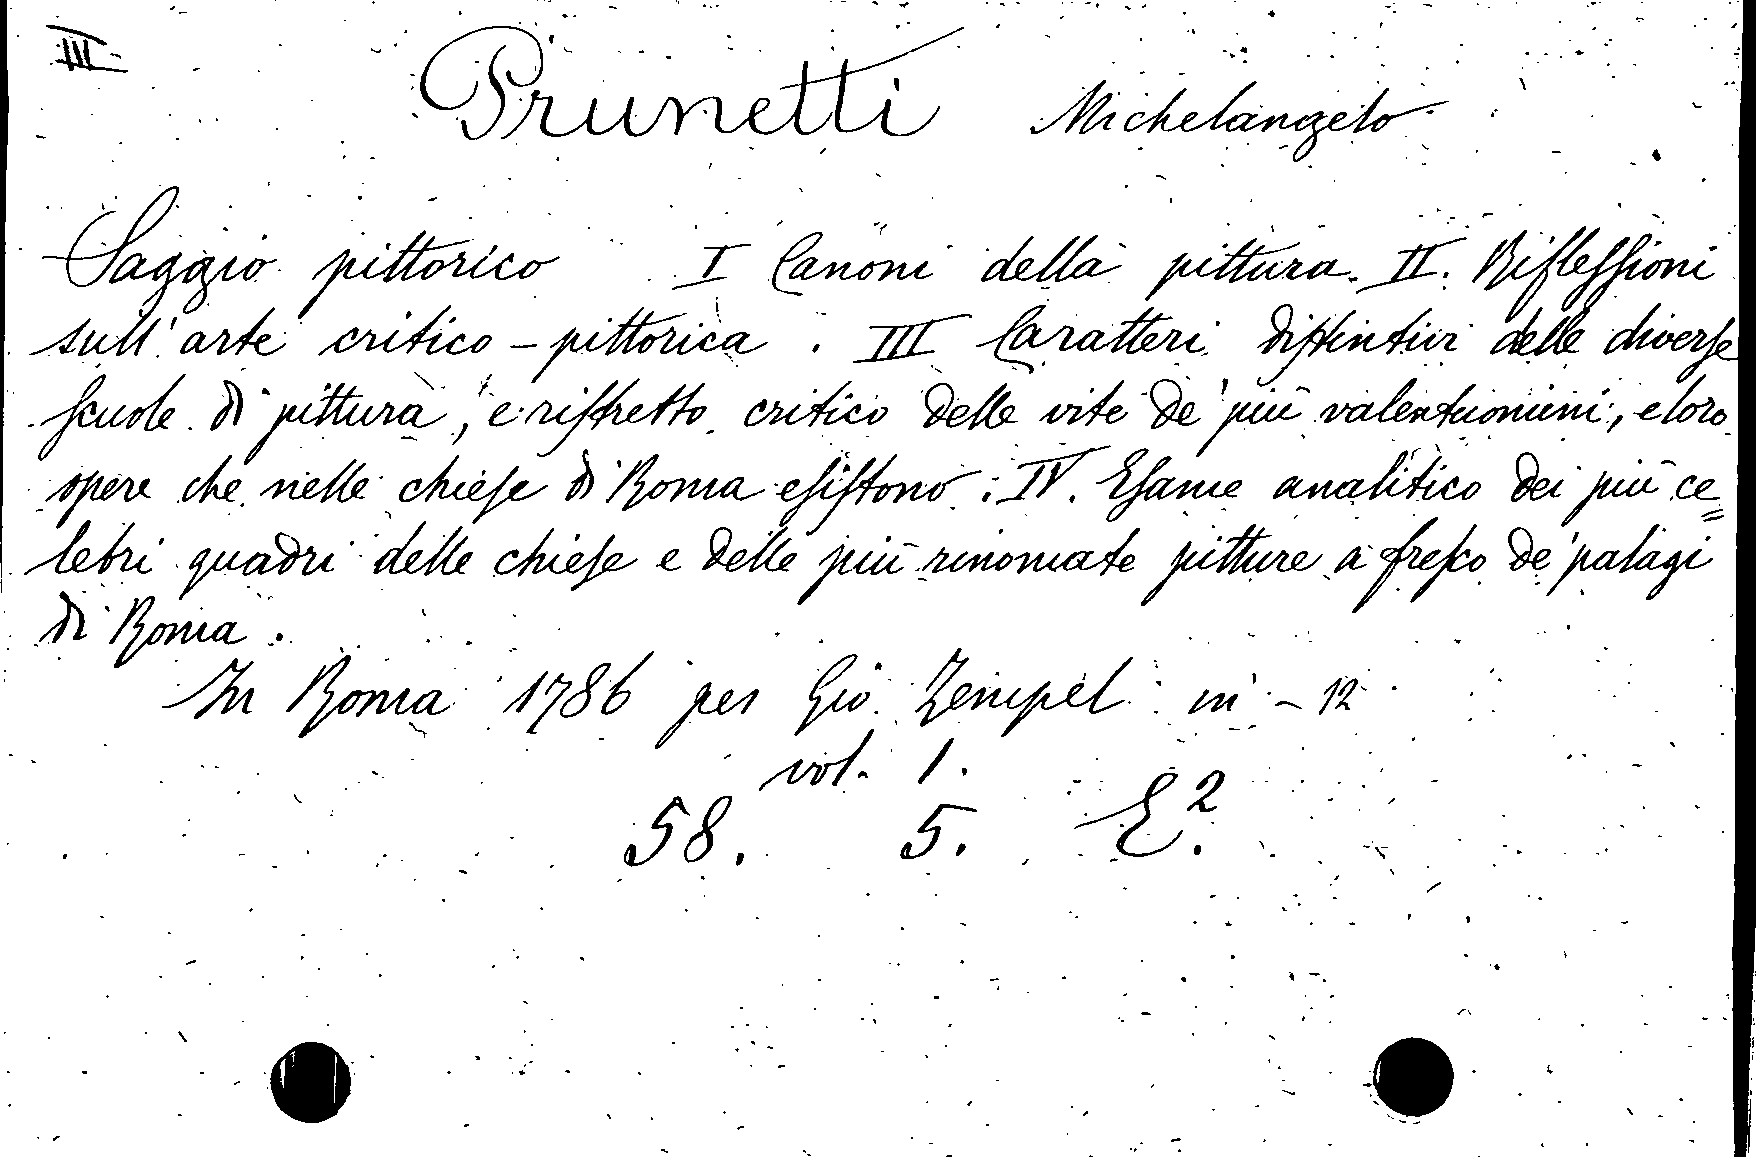 III
Prunetti Michelangelo
Saggio pittorico I Canoni della pittura. II. Riflessioni
sull'arte critico-pittorica. III Caratteri distintivi delle diverse
scuole di pittura, e ristretto critico delle vite de' più valentuomini, e loro
opere che nelle chiese di Roma esistono. IV. Esame analitico dei più ce=
lebri quadri delle chiese e delle più rinomate pitture a fresco de' palagi
di Roma.
In Roma 1786 per Gio Zempel in-12
vol. 1.
58. 5. E2.